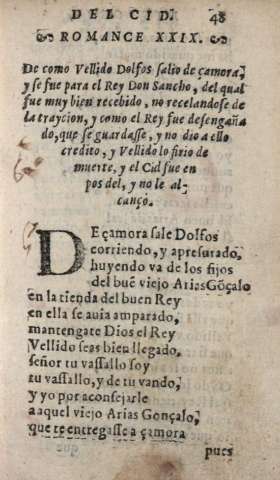 DEL CID. 48
ROMANCE XXIX.
De como Vellido Dolfos salio de çamora,
y se fue para el Rey Don Sancho, del qual
fue muy bien recebido, no recelandose de
la traycion, y como el Rey fue desengaña
do, que se guardasse, y no dio a ello
credito, y Vellido lo firio de
muerte, y el Cid fue en
pos del, y no le al-
canço.
DE çamora sale Dolfos
corriendo, y apresurado,
huyendo va de los fijos
del buē viejo Arias Gōçalo
en la tienda del buen Rey
en ella se auia amparado,
mantengate Dios el Rey
Vellido seas bien llegado,
señor tu vassallo soy
tu vassallo, y de tu vando,
y yo por aconsejarle
a aquel viejo Arias Gonçalo,
que te entregasse a çamora
pues